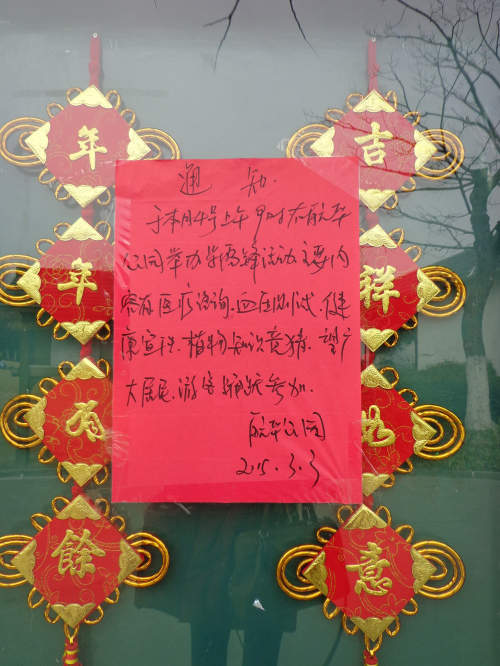 年年有餘
吉祥如意
通 知.
于本月4号上午9时在航华
公园举办学雷锋活动.主要内
容有医疗咨询.血压测试.健
康宣传.植物知识竞猜.望广
大居民.游客踊跃参加.
航华公园
2015.3.3